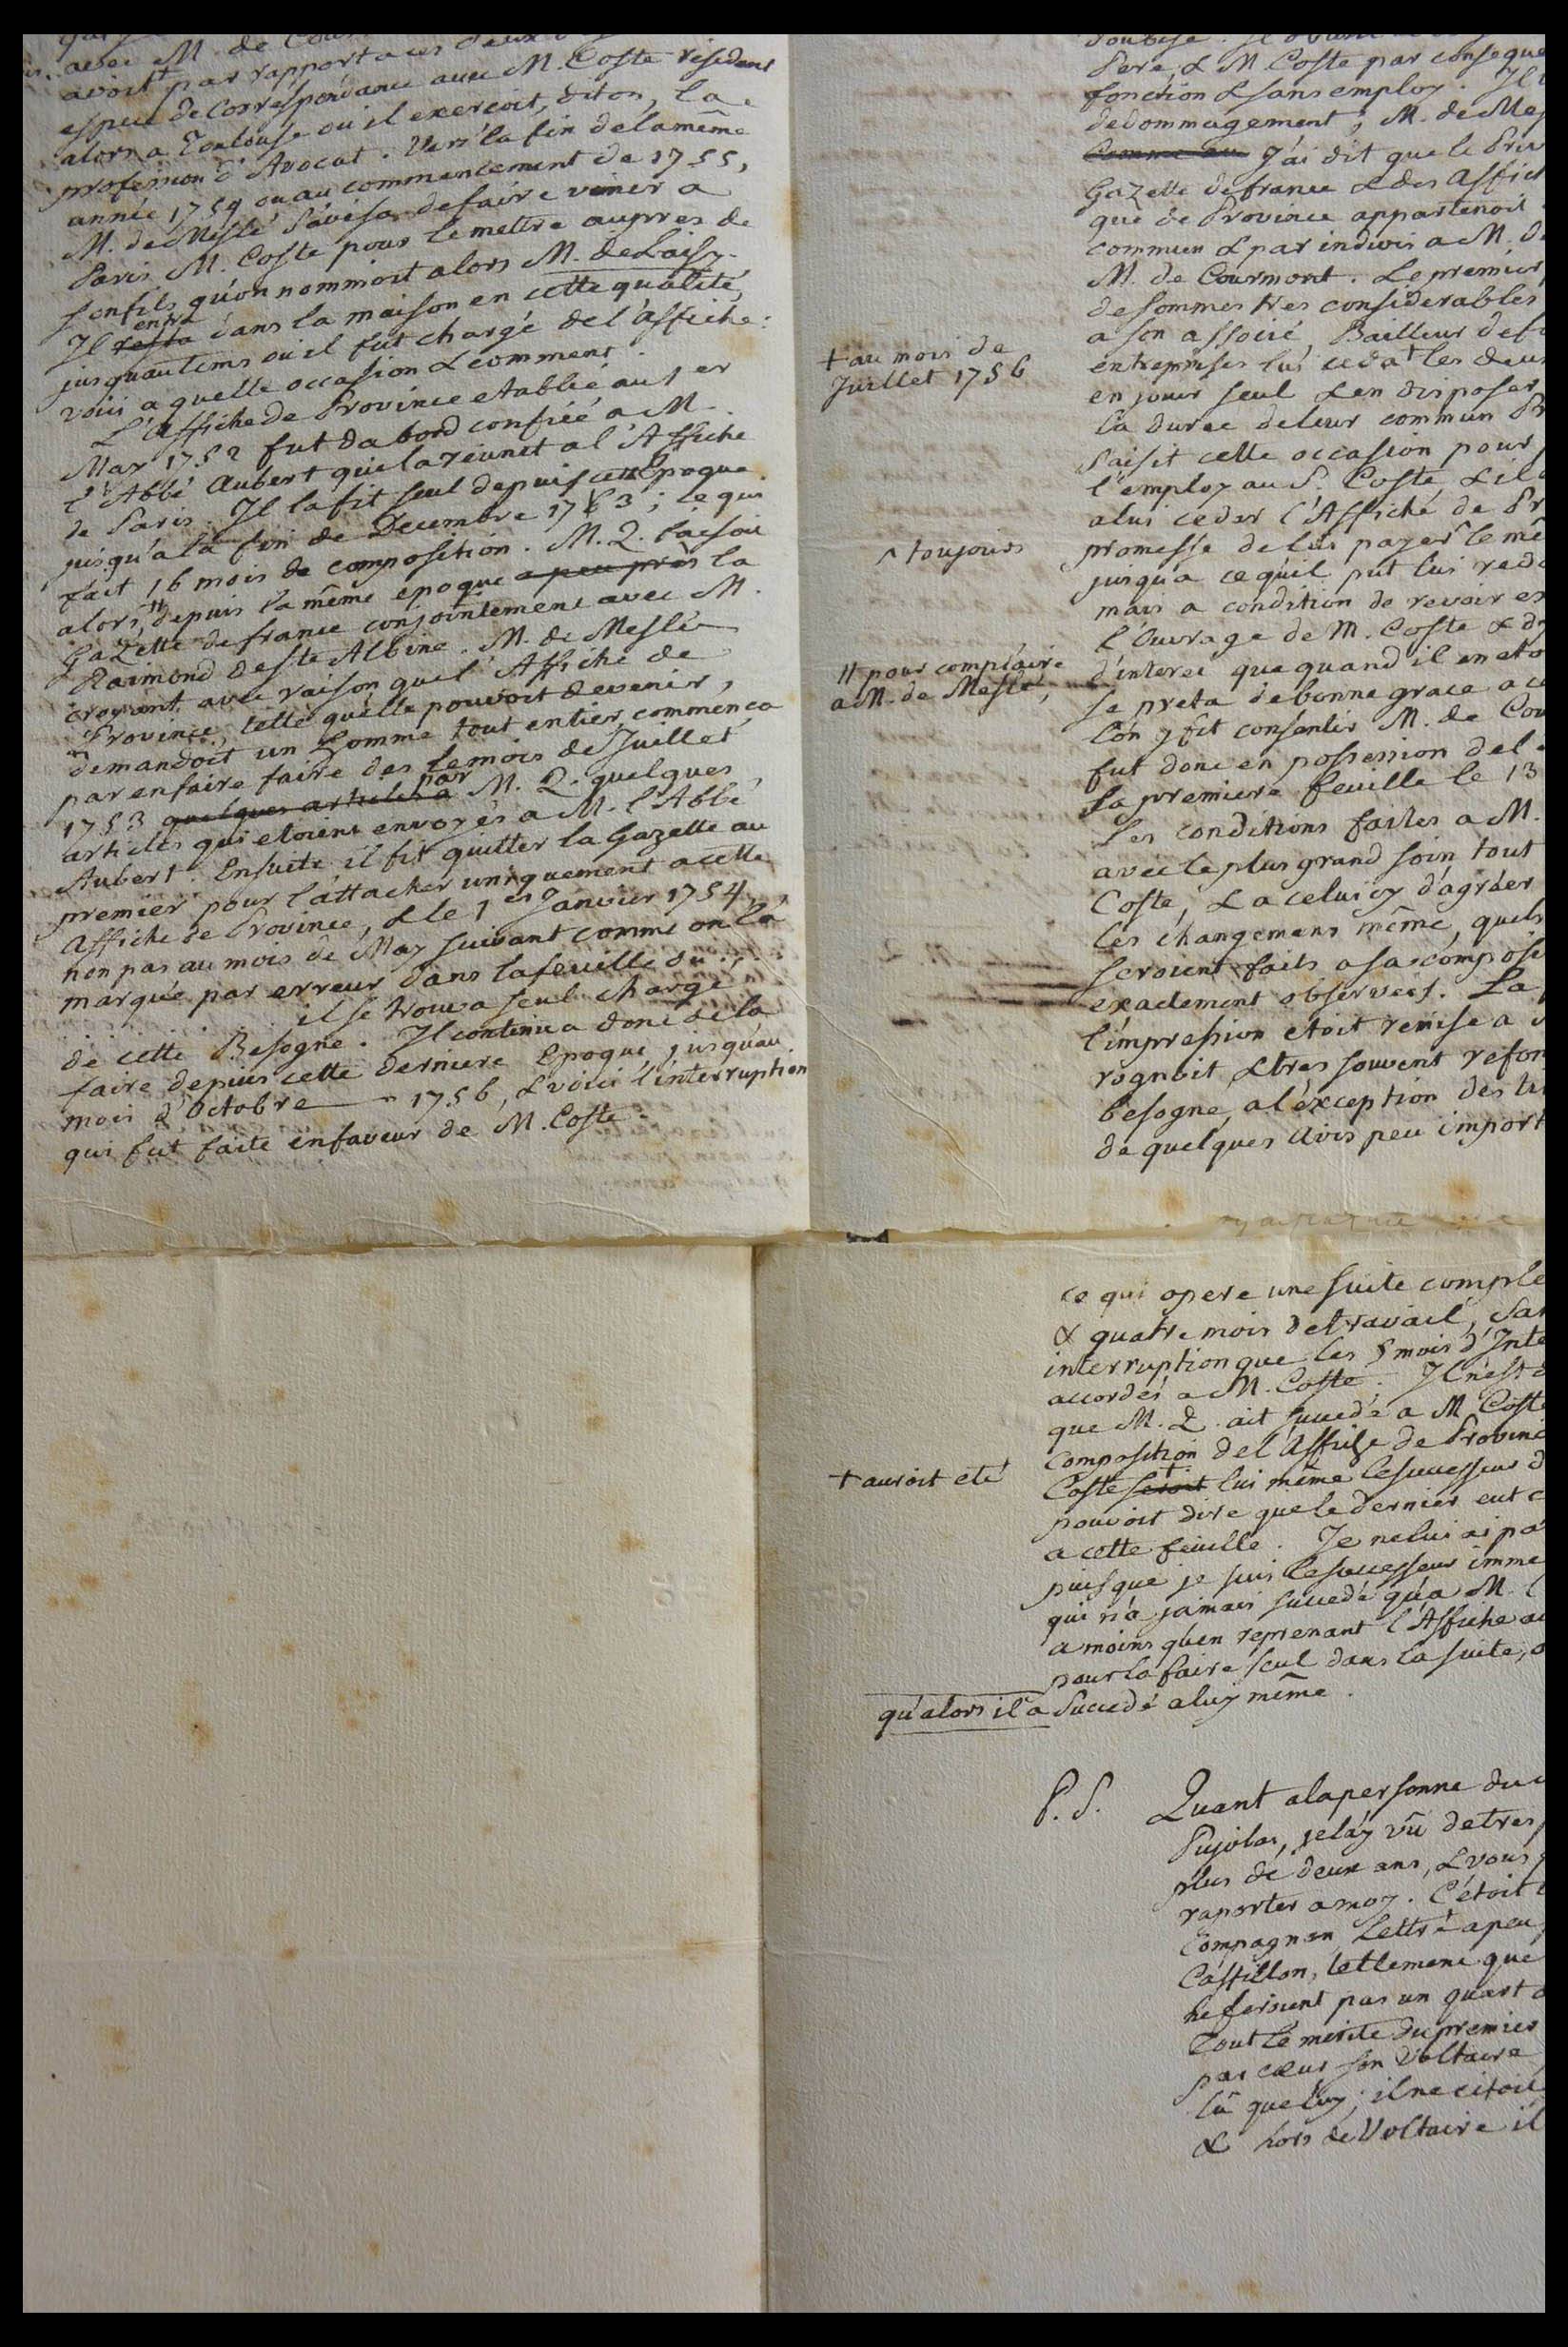 avec M. de
avoit par rapport a ces deux
espece de Correspondance avec M. Coste residant
alors a Toulouse ou il exercoit, dit on, la
profession d'Avocat. Vers la fin de la même
année 1754 ou au commencement de 1755,
M. de Meslé s'avisa de faire venir a
Paris M. Coste pour le mettre aupres de
son fils qu'on nommoit alors M. de Laisy.
Il resta entra dans la maison en cette qualité,
jusqu'au tems ou il fut chargé de l'affiche:
voici a quelle occasion & comment.
L'affiche de Province etablie au 1er
May 1752 fut dabord confiée a M.
l'Abbé Aubert qui la réunit a l'Affiche
de Paris. Il la fit seul depuis cette Epoque
jusqu'a la fin de Decembre 1753; ce qui
fait 16 mois de composition. M. Q. faisoit
alors, # depuis la même epoque a peu près la
Gazette de france conjointement avec M.
Raimond de Ste Albine. M. de Meslé
croyant, avec raison que l'Affiche de
Province, telle qu'elle pouvoit devenir,
demandoit un homme tout entier, commença
par en faire faire des le mois de Juillet
1753 quelques articles a par M. Q. quelques
articles qui etoient envoyés a M. l'Abbé
Aubert. Ensuite il fit quitter la Gazette au
premier pour l'attacher uniquement a cette
Affiche de Province, & le 1er Janvier 1754,
non pas au mois de May suivant comme on l'a
marqué par erreur dans la feuille du..,
il se trouva seul chargé
de cette Besogne. Il continua donc de la
faire depuis cette derniere Epoque, jusqu'au
mois d'Octobre 1756, & voici l'interruption
qui fut faite en faveur de M. Coste.
Pere, & M. Coste par conseque
fonction & sans employ. Il
dedommagement; M. de Mes
Comme au J'ai dit que le Priv
Gazette de france & des Affich
que de Province appartenoit
commun & par indivis a M. D
M. de Courmont. Le premier
de sommes tres considerables
a son associé, Bailleur de f
+ au mois de
Juillet 1756
entreprises lui ceda + les deux
en jouir seul & en disposer
la durée de leur commun Pr
saisit cette occasion pour
l'employ au S. Coste, & il
a lui ceder l'Affiche de Pr
^ toujours
promesse de lui payer ^ le mê
jusqu'a ce qu'il put lui redo
mais a condition de revoir
l'Ouvrage de M. Coste & d'y
# pour complaire
a M. de Meslé,
d'interet que quand il en eto
se preta de bonne grace a ce
l'on y fit consentir M. de Cou
fut donc en possession de l'
sa premiere feuille le 13
Les conditions faites a M.
avec le plus grand soin tout
Coste, & a celui cy d'agréer
les changemens même, quels
seroient faits a sa composi
exactement observées. La
l'impression etoit remise a
rognoit & tres souvent refon
besogne, a l'exception des
de quelques Avis peu import
ce qui opere une suite comple
& quatre mois de travail, San
interruption que les 5 mois d'Inte
accordés a M. Coste. Il n'est
que M. Q. ait succedé a M. Coste
Composition de l'Affiche de Provinc
+ auroit eté
Coste seroit + lui même le successeur d
pouvoit dire que le dernier eut
a cette feuille. Je ne lui ai pa
puisque je suis le successeur imme
qui n'a jamais succedé qu'a M.
a moins qu'en reprenant l'Affiche au
pour la faire seul dans la suite, o
qu'alors il a Succedé a luy même.
P.S. Quant a la personne du
Pujolas, je l'ay vû de tres
plus de deux ans, & vous
raporter a moy. C'étoit
Compagnon Lettré a peu
Castillon, tellement que
ne feroient pas un quart d
Tout le merite du premier
par cœur son Voltaire
lû que luy; il ne citoit
& hors de Voltaire il